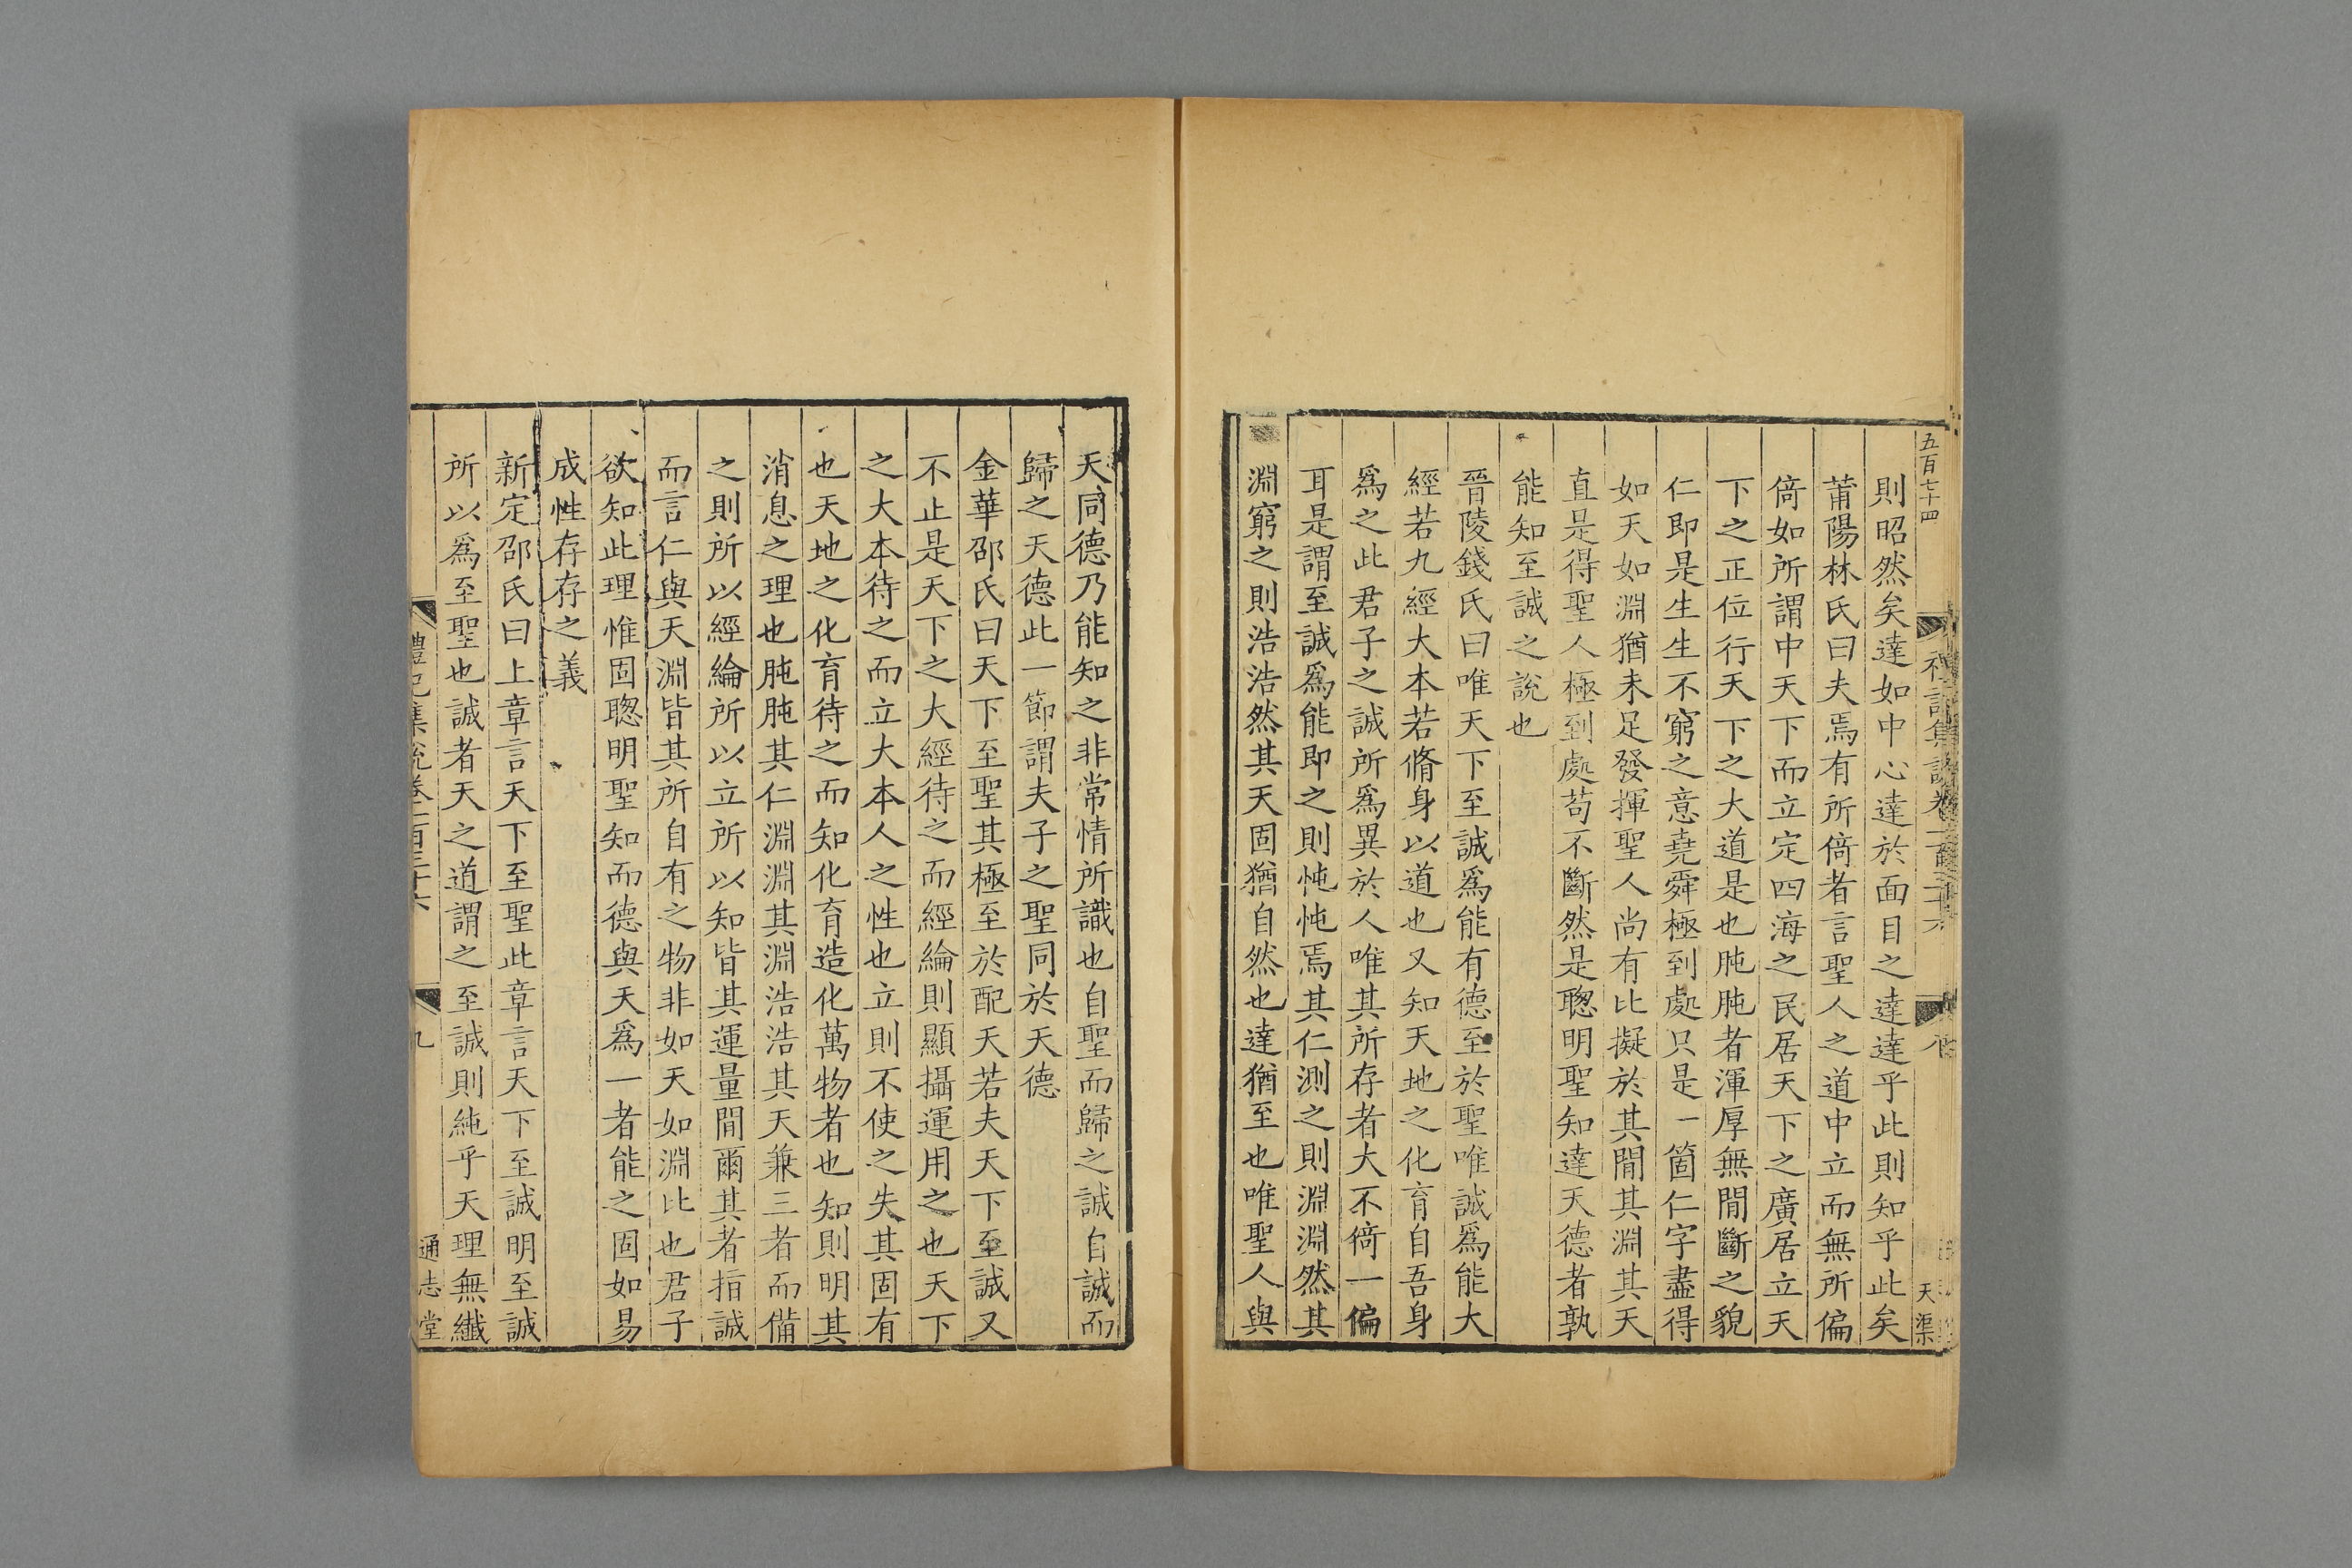 五百七十四
天渠
則昭然矣達如中心達於面目之達達乎此則知乎此矣
莆陽林氏曰夫焉有所倚者言聖人之道中立而無所偏
倚如所謂中天下而立定四海之民居天下之廣居立天
下之正位行天下之大道是也肫肫者渾厚無間斷之貌
仁即是生生不窮之意堯舜極到處只是一箇仁字盡得
如天如淵猶未足發揮聖人尚有比擬於其間其淵其天
直是得聖人極到處苟不斷然是聦明聖知達天德者孰
能知至誠之說也
晉陵錢氏曰唯天下至誠爲能有德至於聖唯誠爲能大
經若九經大本若脩身以道也又知天地之化育自吾身
爲之此君子之誠所爲異於人唯其所存者大不倚一偏
耳是謂至誠爲能即之則忳忳焉其仁測之則淵淵然其
淵窮之則浩浩然其天固猶自然也達猶至也唯聖人與
天同德乃能知之非常情所識也自聖而歸之誠自誠而
歸之天德此一節謂夫子之聖同於天德
金華邵氏曰天下至聖其極至於配天若夫天下至誠又
不止是天下之大經待之而經綸則顯攝運用之也天下
之大本待之而立大本人之性也立則不使之失其固有
也天地之化育待之而知化育造化萬物者也知則明其
消息之理也肫肫其仁淵淵其淵浩浩其天兼三者而備
之則所以經綸所以立所以知皆其運量間爾其者指誠
而言仁與天淵皆其所自有之物非如天如淵比也君子
欲知此理惟固聦明聖知而德與天爲一者能之固如易
成性存存之義
新定邵氏曰上章言天下至聖此章言天下至誠明至誠
所以爲至聖也誠者天之道謂之至誠則純乎天理無纖
禮記集說卷一百三十六
九
通志堂